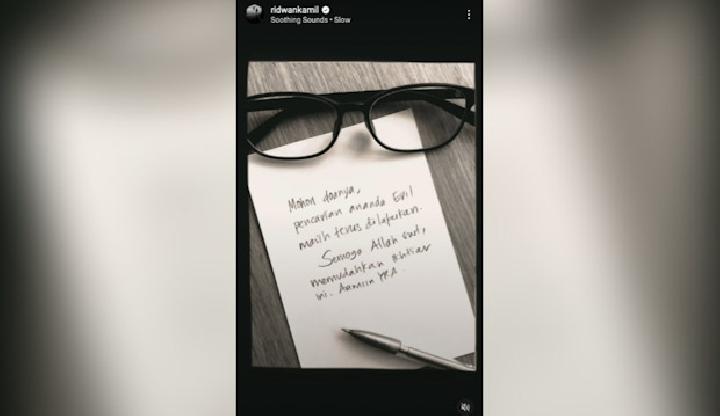 ridwankamil
Soothing Sounds • Slow
Mohon doanya,
pencarian ananda Eril
masih terus dilakukan.
Semoga Allah swt,
memudahkan ikhtiar
ini. Aamiin YRA.